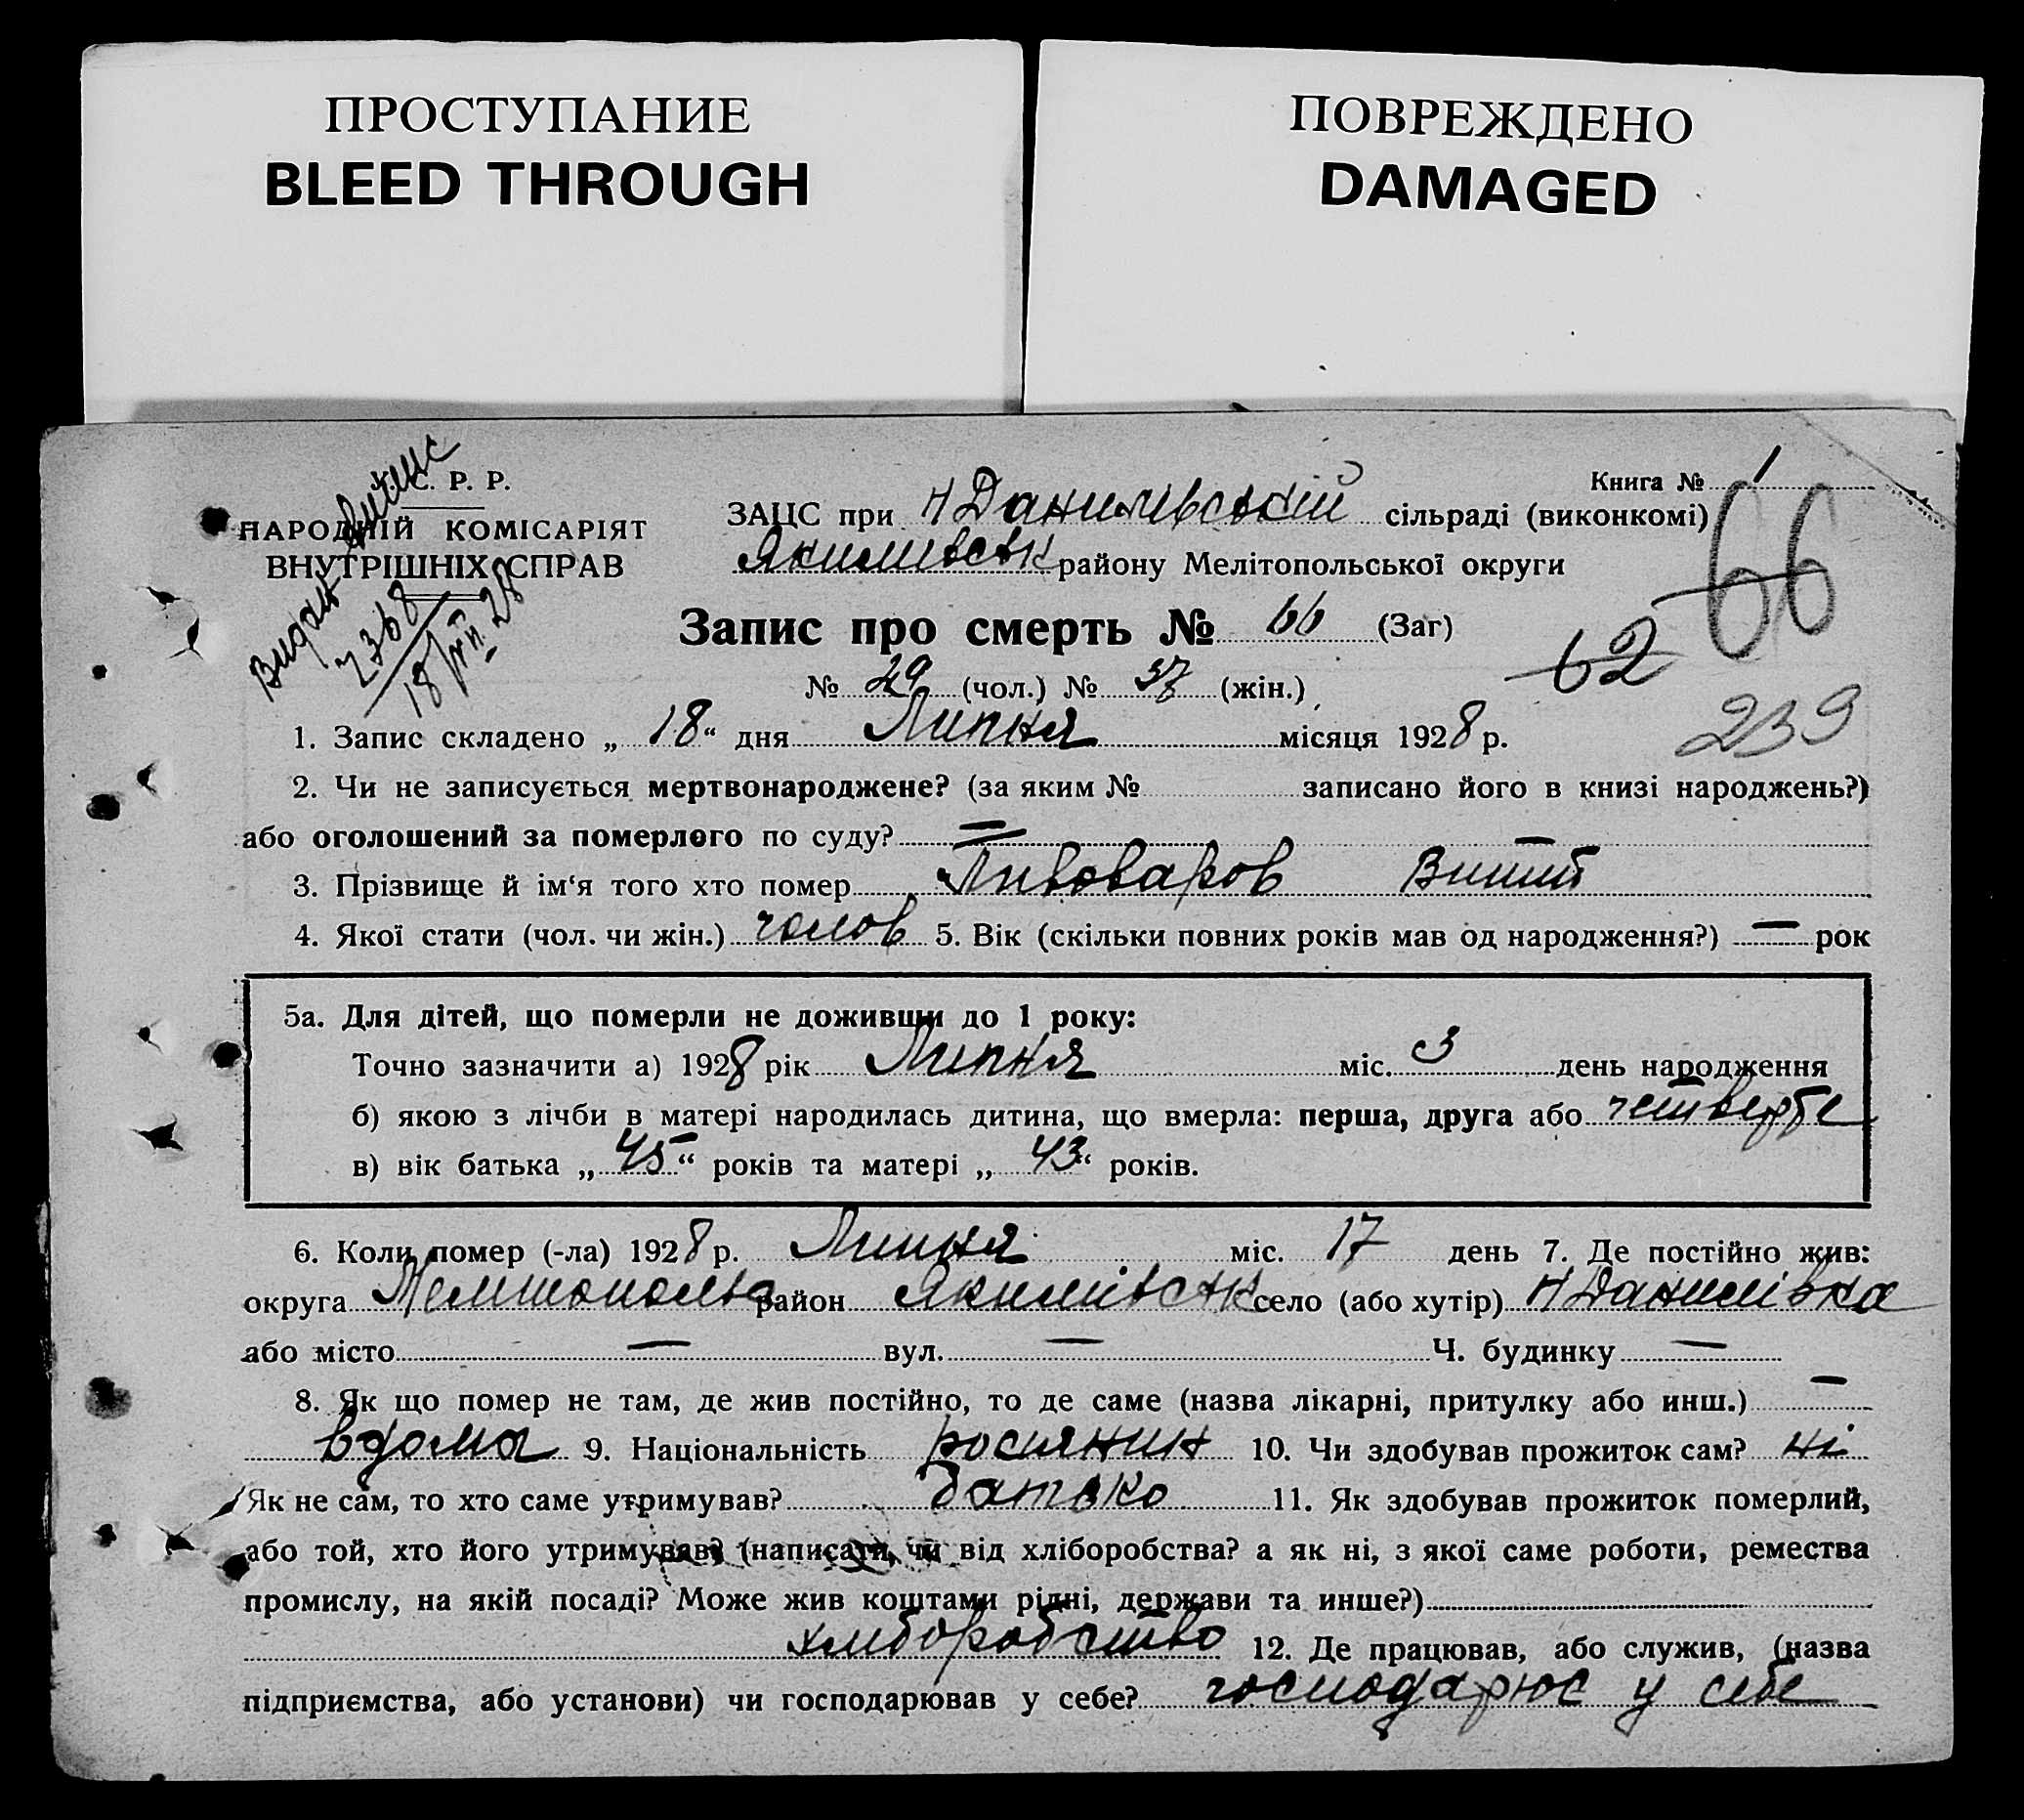 ПРОСТУПАНИЕ
BLEED THROUGH
ПОВРЕЖДЕНО
DAMAGED
С. Р. Р.
НАРОДНІЙ КОМІСАРІЯТ
ВНУТРІШНІХ СПРАВ
2368
18/VII 28
Книга № 1
ЗАЦС при Н Данилівській сільраді (виконкомі)
Якимівськ району Мелітопольської округи
66
Запис про смерть № 66 (Заг)
62
№ 29 (чол.) № 37 (жін.)
239
1. Запис складено „ 18 “ дня Липня місяця 1928 р.
2. Чи не записується мертвонароджене? (за яким № записано його в книзі народжень?)
або оголошений за померлого по суду? —
3. Прізвище й ім‘я того хто помер Пивоваров
4. Якої стати (чол. чи жін.) чолов 5. Вік (скільки повних років мав од народження?) — рок
5а. Для дітей, що померли не доживши до 1 року:
Точно зазначити а) 1928 рік Липня міс. 3 день народження
б) якою з лічби в матері народилась дитина, що вмерла: перша, друга або
в) вік батька „ 45 “ років та матері „ 43 “ років.
6. Коли помер (-ла) 1928 р. Липня міс. 17 день 7. Де постійно жив:
округа Мелітопольс район Якимівськ село (або хутір) Н Данилівка
або місто — вул. — Ч. будинку —
8. Як що помер не там, де жив постійно, то де саме (назва лікарні, притулку або инш.) —
вдома 9. Національність росиянин 10. Чи здобував прожиток сам? ні
Як не сам, то хто саме утримував? батько 11. Як здобував прожиток померлий,
або той, хто його утримував? (написати, чи від хліборобства? а як ні, з якої саме роботи, ремества
промислу, на якій посаді? Може жив коштами рідні, держави та инше?)
хліборобство 12. Де працював, або служив, (назва
підприємства, або установи) чи господарював у себе? господарює у себе